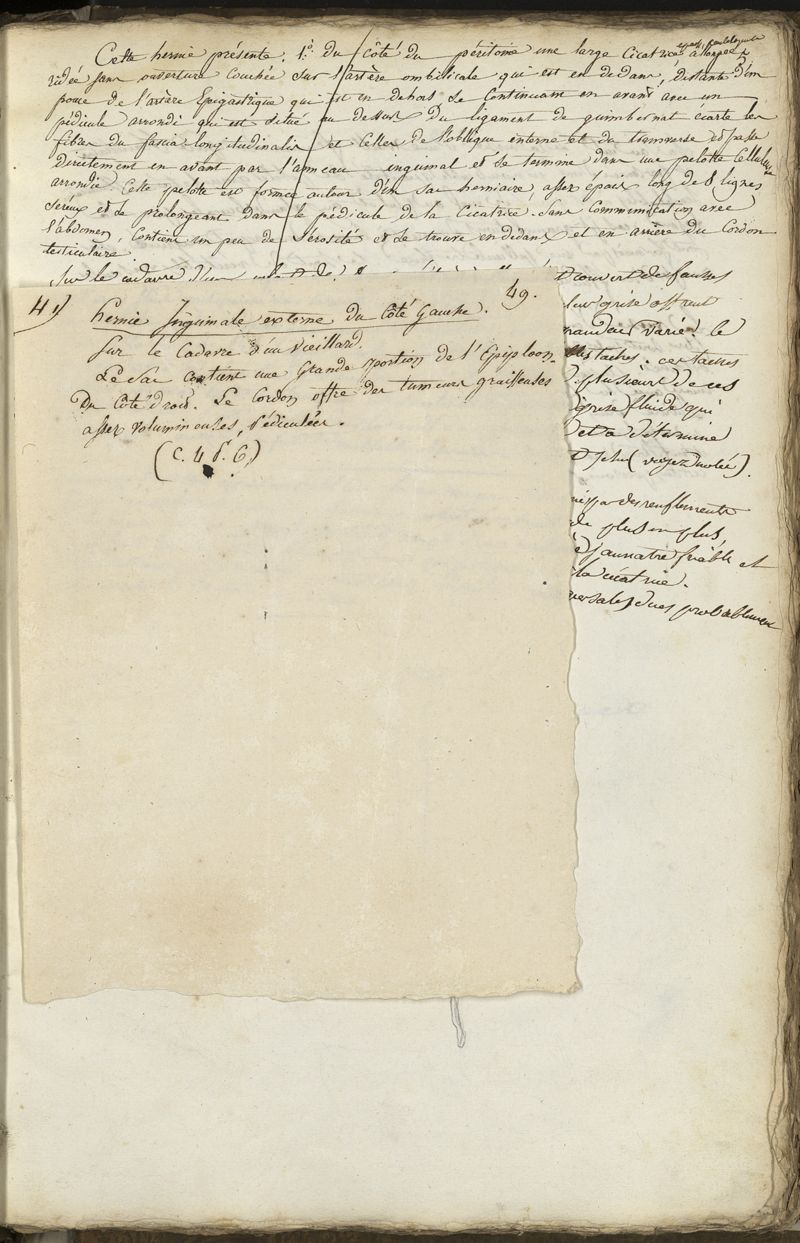 Cette hernie présente. 1.° du côté du péritoine une large Cicatrice allongée
ridée sans ouverture Couchée sur l'artère ombilicale qui est en dedans, distante d'un
pouce de l'artère Epigastrique qui est en dehors se Continuant en avant avec un
pédicule arrondi qui est situé au dessus du ligament de guimbernat écarte les
fibres du fascia longitudinalis et celles de l'oblique interne et du transverse et passe
directement en avant par l'anneau inguinal et se termine dans une pelotte Celluleuse
arrondie. Cette pelotte est formée autour d'un sac herniaire, assez épais long de 8 lignes
séreux et se prolongeant dans le pédicule de la Cicatrice. Sans Communication avec
l'abdomen, Contient un peu de Sérosité et se trouve en dedans et en arrière du Cordon
testiculaire.
Sur le cadavre d'un
41) hernie Inguinale externe du Côté Gauche. 49.
Sur le Cadavre d'un Vieillard.
Le Sac Contient une Grande portion de l'Epiploon.
Du Côté droit. Le Cordon offre des tumeurs graisseuses
assez volumineuses, Pédiculées.
(C. 4 P. 6)
couvert de fausses
grise offrent
varié. le
taches. ces taches
plusieurs de ces
grise fluide qui
et a déterminé
(voyez
des renflements
de plus en plus,
jaunatre friable et
la cicatrice.
dues probablement